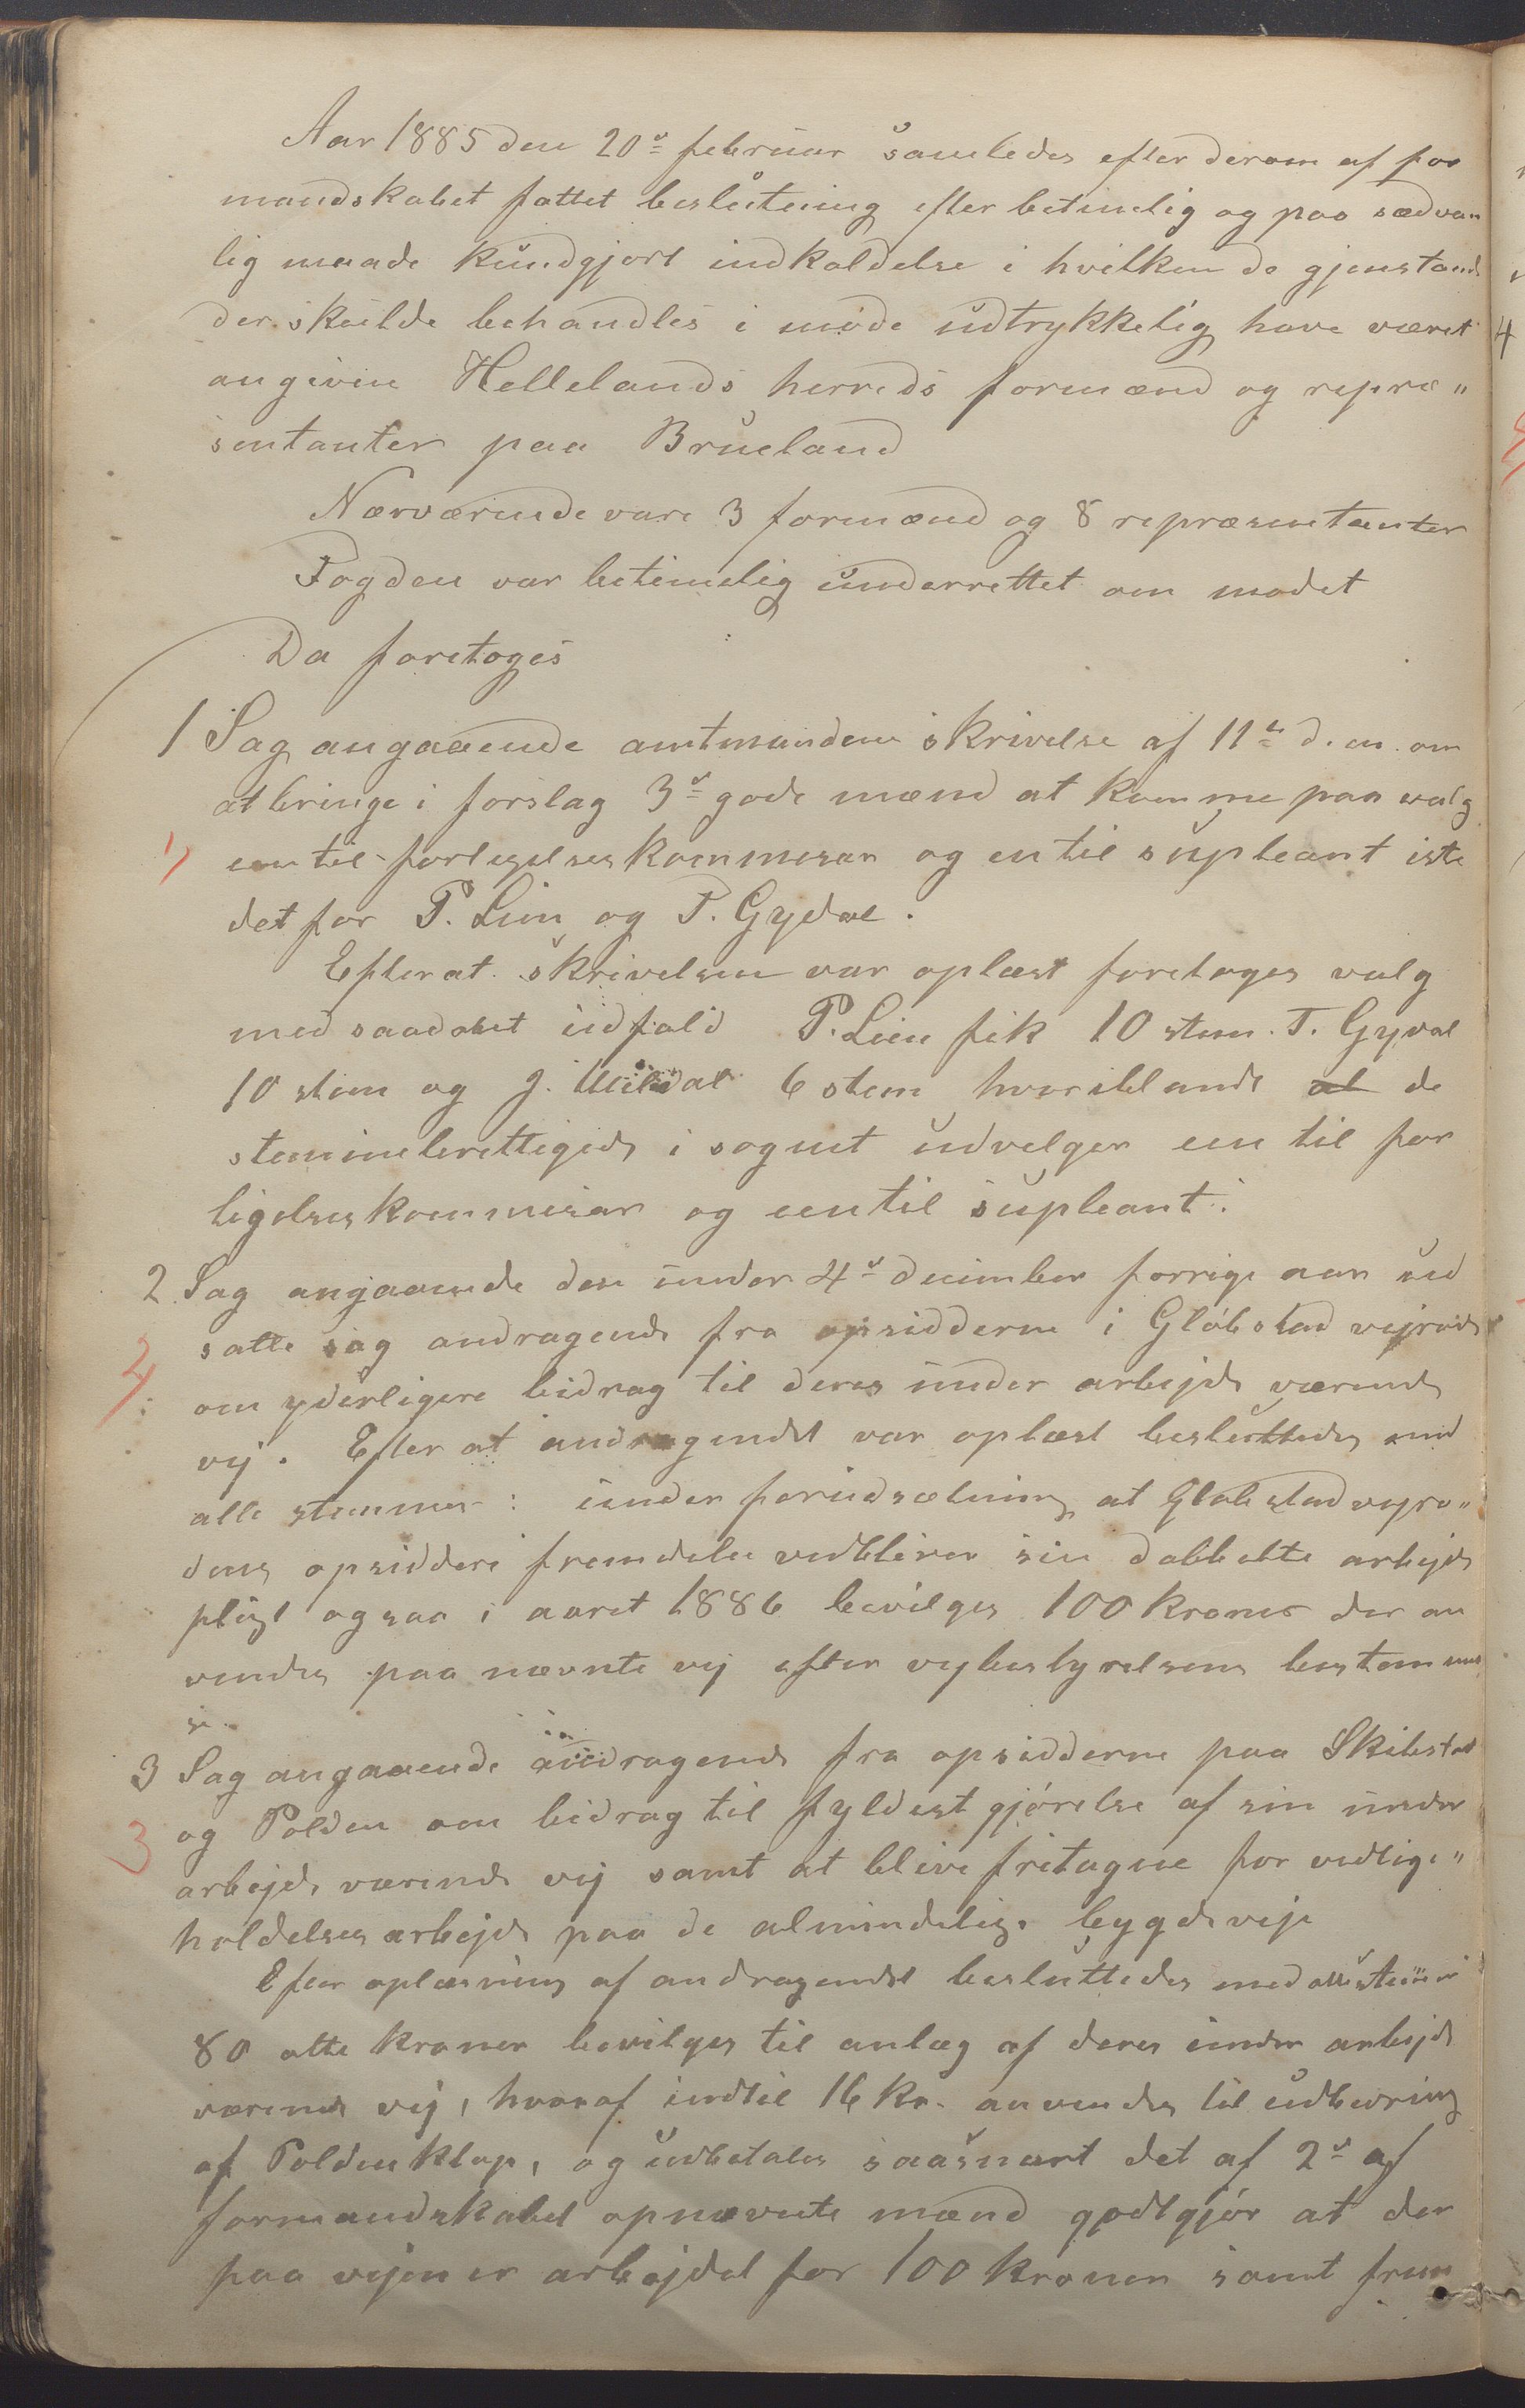 Aar 1885 den 20de februar samledes efter derom af for
mandskabet fattet beslutning efter betimelig og paa sædvan
lig maade kundgjort indkaldelse i hvilken de gjenstand
der skulde behandles i møde udtrykkelig have været
angivne Hellelands herreds formænd og repræ„
sentanter paa Brueland
Nærværende vare 3 formænd og 8 repræsentanter
Fogden var betimelig underrettet om mødet
Da foretoges
1 Sag angaaende amtmandens skrivelse af 11te d. m. om
at bringe i forslag 3de gode mænd at komme paa valg
1) een til forligelseskommisær og en til supleant iste
det for P. Lien og T. Gydal.
Efter at skrivelsen var oplæst foretoges valg
med saadant udfald P. Lien fik 10 stem. T. Gyval
10 stem og J. 6 stem hvoriblandt al de
stemmeberettigede i sognet udvelger een til for
ligelseskommisær og een til supleant.
2 Sag angaaende den under 4de december forrige aar ud
satte sag andragende fra opsidderne i Gløbstad vejrode
2) om yderligere bidrag til deres under arbejde værende
vej. Efter at andragendet var oplæst besluttedes med
alle stemmer: under forudsætning at Gløbstad vejro„
dens opsiddere fremdeles vedbliver sin dobbelte arbejds
pligt ogsaa i aaret 1886 bevilges 100 kroner der an
vendes paa nævnte vej efter vejbestyrelsens bestemmel
se.
3 Sag angaaende andragende fra opsidderne paa Skibstad
3 og Polden om bidrag til fyldestgjørelse af sin under
arbejde værende vej samt at blive fritagne for vedlige„
holdelses arbejde paa de almindelige bygdeveje
Efter oplæsning af andragendet besluttedes med alle stemmer
80 otte kroner bevilges til anlæg af deres under arbejde
værende vej, hvoraf indtil 16 kr. anvendes til udbedring
af Polden klop, og udbetales saasnart det af 2de af
formandskabet opnævnte mænd godtgjør at der
paa vejen er arbejdet for 100 kroner samt frem